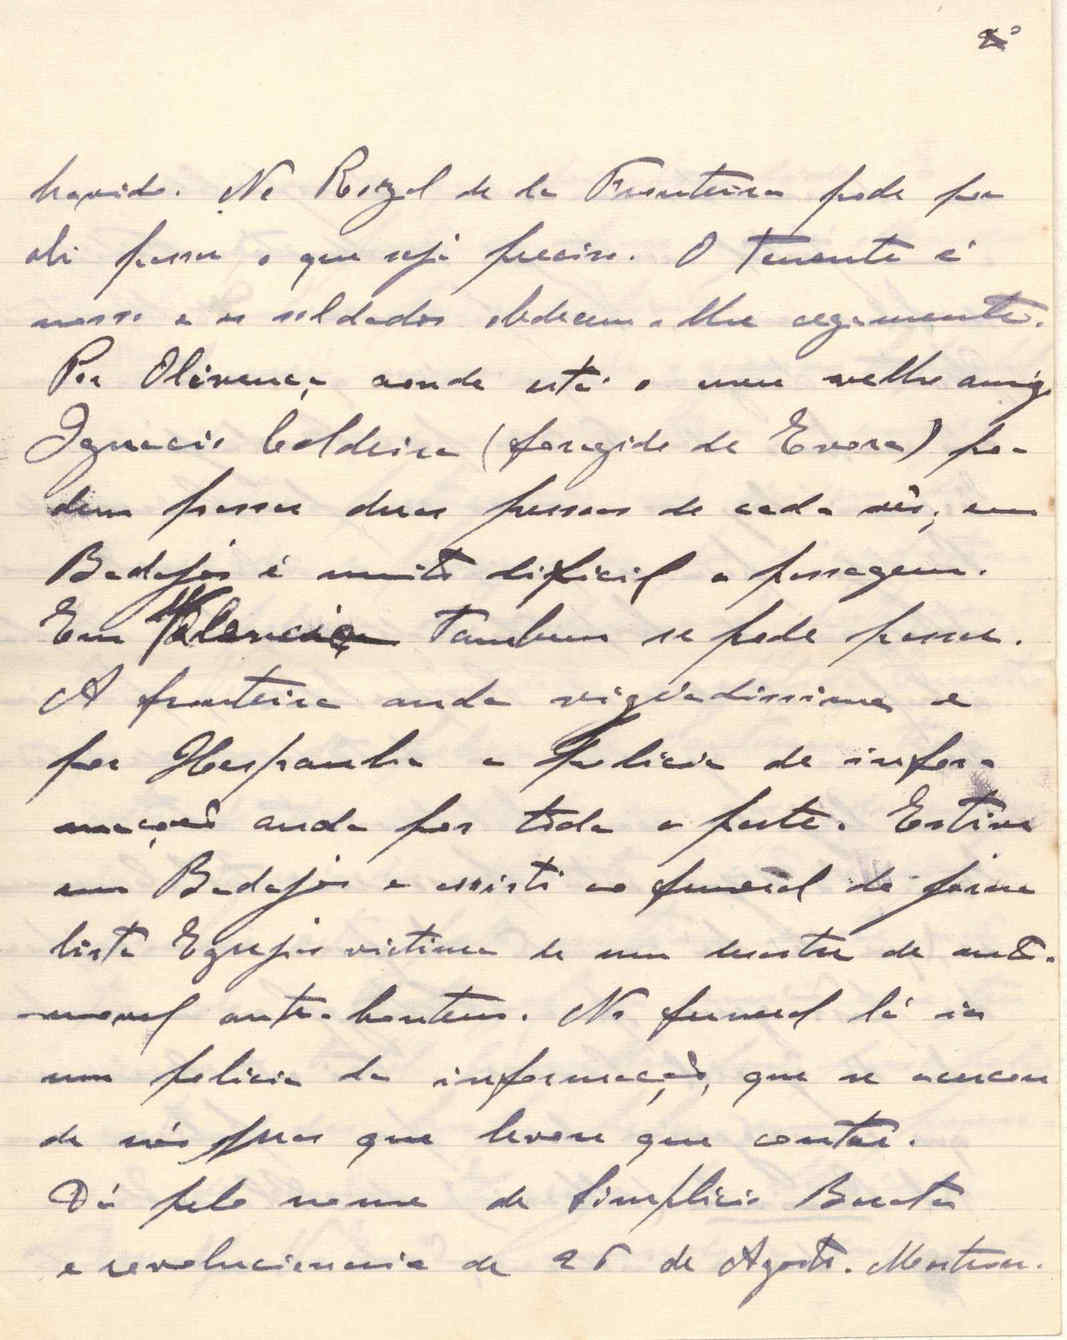 2º
havido. No Rozal de la Frontera pode por
ali passar o que seja preciso. O tenente é
nosso e os soldados obdecem-lhe cegamente.
Por Olivença, aonde está o meu velho amigo
Ignacio Caldeira (foragido de Evora) po-
dem passar duas pessoas de cada vês; em
Badajós é muito dificil a passagem.
Em Valencia tambem se pode passar.
A fronteira anda vigiadissima e
por Hespanha a policia de infor-
mação anda por toda a parte. Estive
em Badajós e assisti ao funeral do jorna
lista victima de um desastre de auto-
-movel ante-hontem. No funeral lá ia
um policia da informação, que se acercou
de nós mas que levou que contar.
Dá pelo nome de Simplicio Barata
e revolucionario de 26 de Agosto. Mostrou.